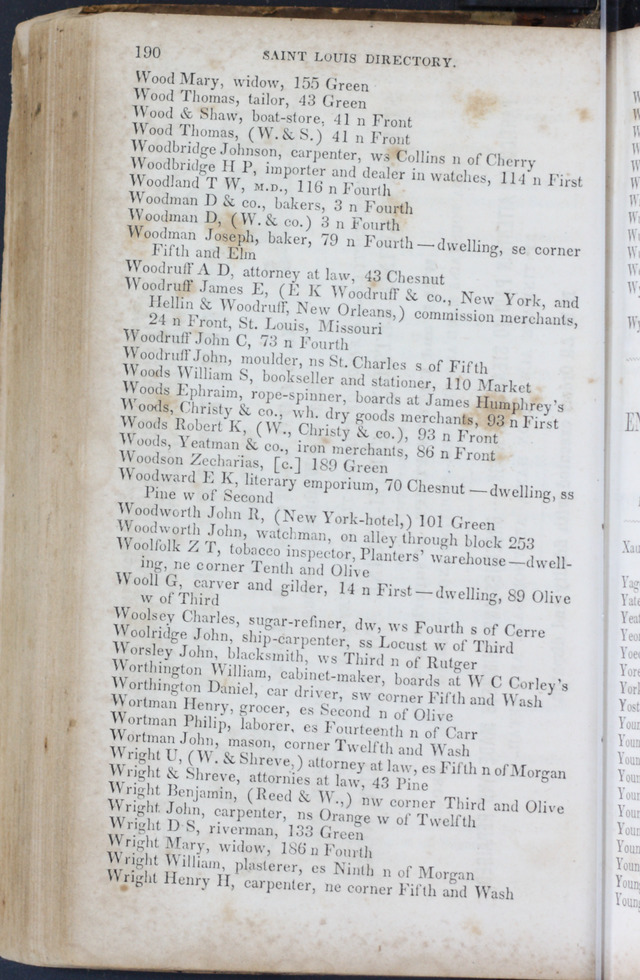 190 SAINT LOUIS DIRECTORY.
Wood Mary, widow, 155 Green
Wood Thomas, tailor, 43 Green
Wood & Shaw, boat-store, 41 n Front
Wood Thomas, (W. & S.) 41 n Front
Woodbridge Johnson, carpenter, ws Collins n of Cherry
Woodbridge H P, importer and dealer in watches, 114 n First
Woodland T W, M.D., 116 n Fourth
Woodman D & co., bakers, 3 n Fourth
Woodman D, (W. & co.) 3 n Fourth
Woodman Joseph, baker, 79 n Fourth—dwelling, se corner
Fifth and Elm
Woodruff A D, attorney at law, 43 Chesnut
Woodruff James E, (E K Woodruff & co., New York, and
Hellin & Woodruff, New Orleans,) commission merchants,
24 n Front, St. Louis, Missouri
Woodruff John C, 73 n Fourth
Woodruff John, moulder, ns St. Charles s of Fifth
Woods William S, bookseller and stationer, 110 Market
Woods Ephraim, rope-spinner, boards at James Humphrey's
Woods, Christy & co., wh. dry goods merchants, 93 n First
Woods Robert K, (W., Christy & co.), 93 n Front
Woods, Yeatman & co., iron merchants, 86 n Front
Woodson Zecharias, [c.] 189 Green
Woodward E K, literary emporium, 70 Chesnut—dwelling, ss
Pine w of Second
Woodworth John R, (New York-hotel,) 101 Green
Woodworth John, watchman, on alley through block 253
Woolfolk Z T, tobacco inspector, Planters' warehouse—dwell-
ing, ne corner Tenth and Olive
Wooll G, carver and gilder, 14 n First—dwelling, 89 Olive
w of Third
Woolsey Charles, sugar-refiner, dw, ws Fourth s of Cerre
Woolridge John, ship-carpenter, ss Locust w of Third
Worsley John, blacksmith, ws Third n of Rutger
Worthington William, cabinet-maker, boards at W C Corley's
Worthington Daniel, car driver, sw corner Fifth and Wash
Wortman Henry, grocer, es Second n of Olive
Wortman Philip, laborer, es Fourteenth n of Carr
Wortman John, mason, corner Twelfth and Wash
Wright U, (W. & Shreve,) attorney at law, es Fifth n of Morgan
Wright & Shreve, attornies at law, 43 Pine
Wright Benjamin, (Reed & W.,) nw corner Third and Olive
Wright John, carpenter, ns Orange w of Twelfth
Wright D S, riverman, 133 Green
Wright Mary, widow, 186 n Fourth
Wright William, plasterer, es Ninth n of Morgan
Wright Henry H, carpenter, ne corner Fifth and Wash